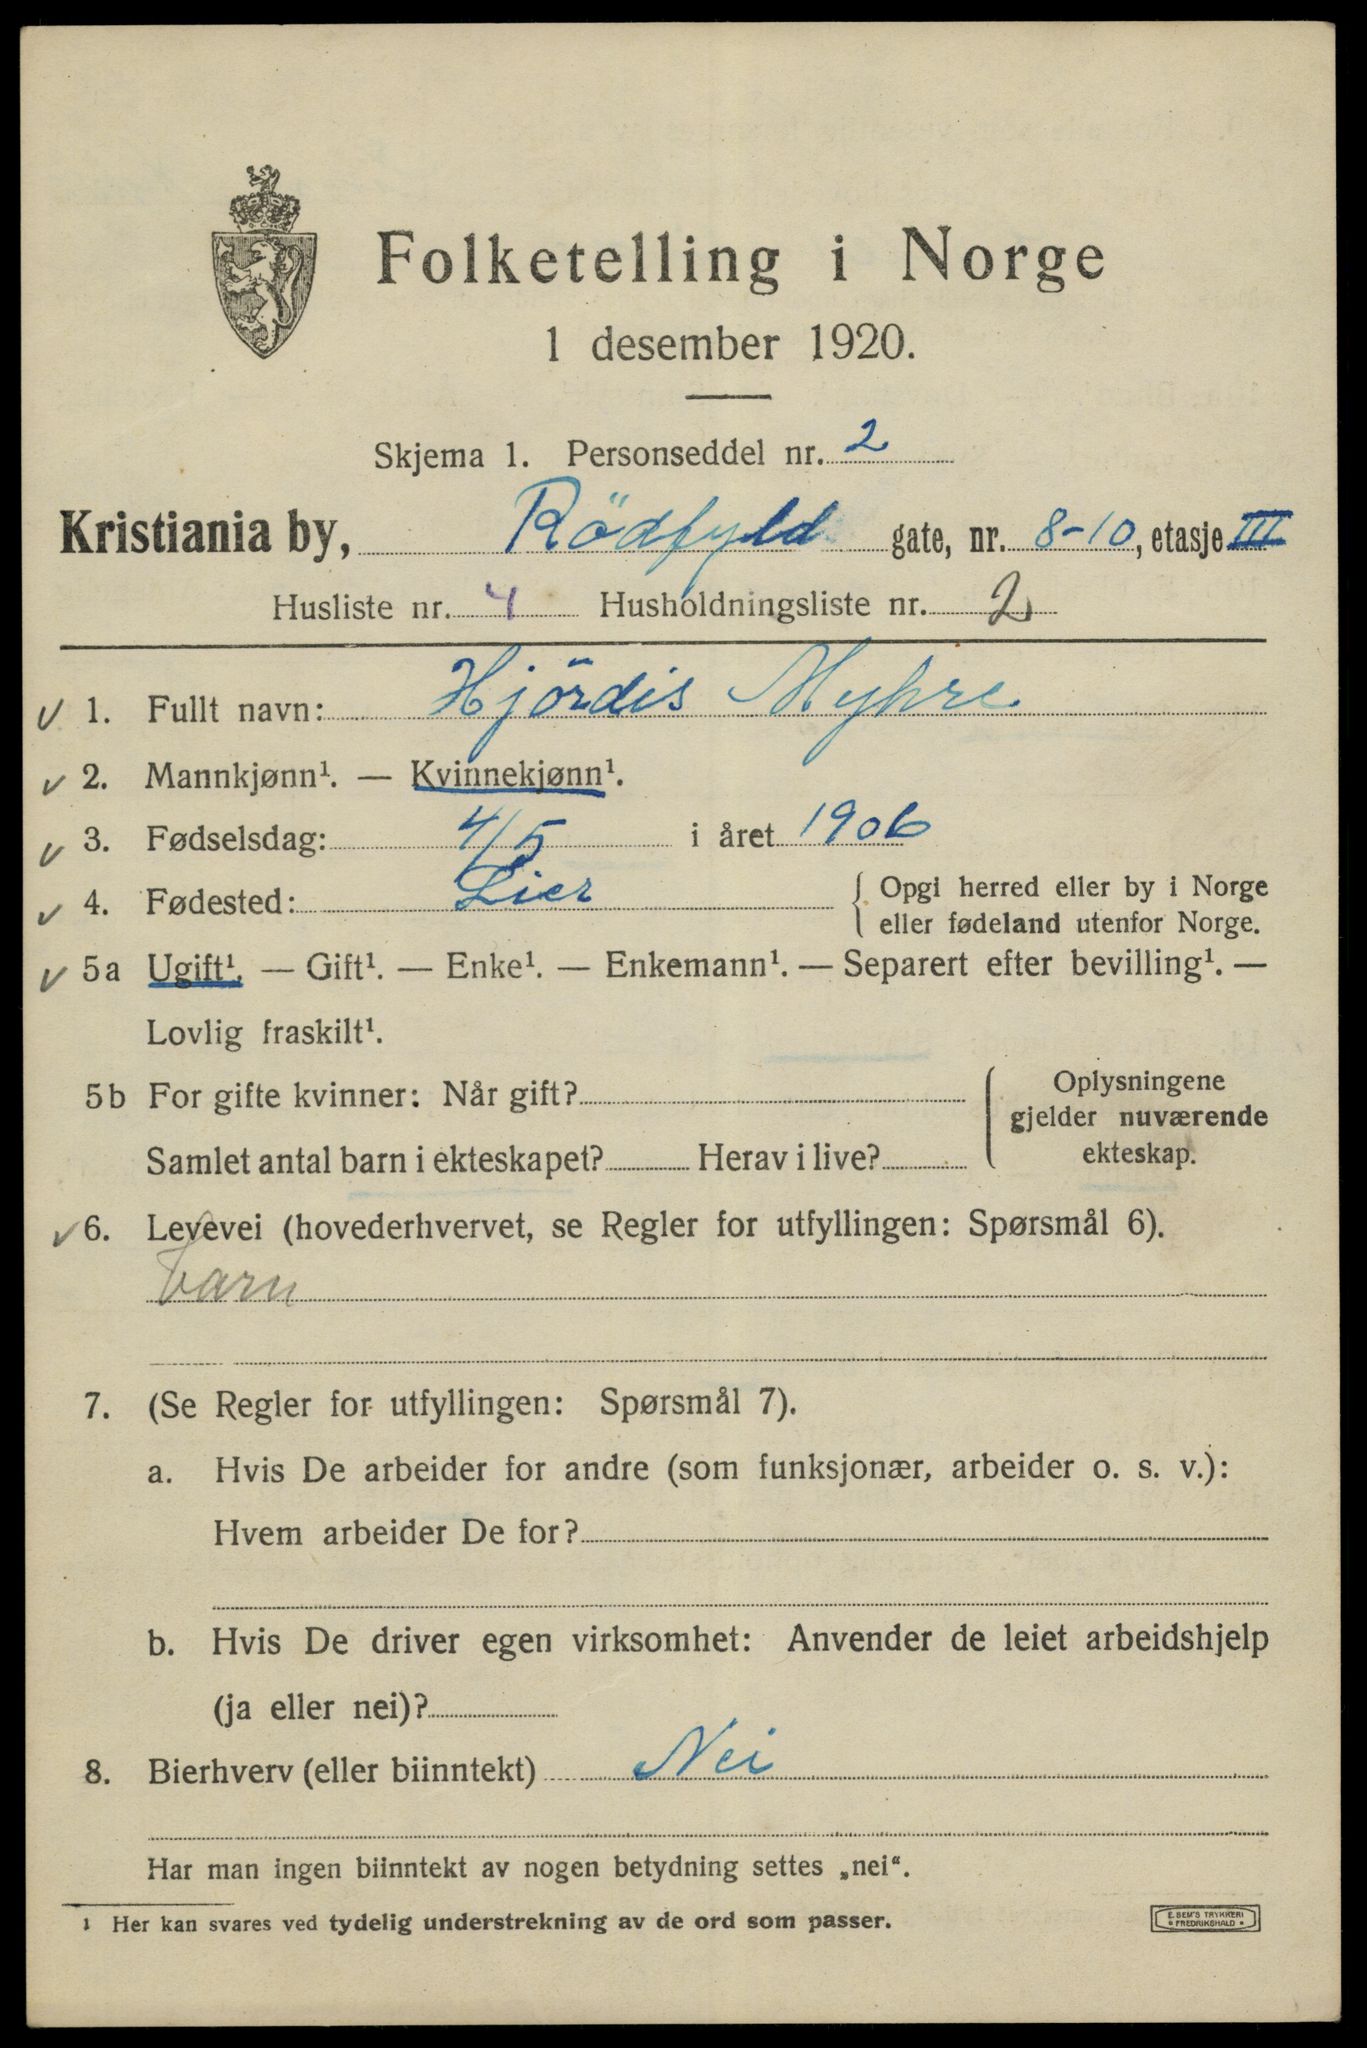 Folketelling i Norge
1 desember 1920.
Skjema 1. Personseddel nr. 2
Kristiania by, Rödfyld gate, nr. 8-10, etasje III
Husliste nr. 4 Husholdningsliste nr. 2
✓ 1. Fullt navn: Hjördis Myhre
✓ 2. Mannkjønn¹. — Kvinnekjønn¹.
✓ 3. Fødselsdag: 4/5 i året 1906
✓ 4. Fødested: Lier { Opgi herred eller by i Norge
eller fødeland utenfor Norge.
✓ 5a Ugift¹. — Gift¹. — Enke¹. — Enkemann¹. — Separert efter bevilling¹. —
Lovlig fraskilt¹.
5b For gifte kvinner: Når gift? { Oplysningene
gjelder nuværende
Samlet antal barn i ekteskapet? Herav i live? ekteskap.
✓ 6. Levevei (hovederhvervet, se Regler for utfyllingen: Spørsmål 6).
barn
7. (Se Regler for utfyllingen: Spørsmål 7).
a. Hvis De arbeider for andre (som funksjonær, arbeider o. s. v.):
Hvem arbeider De for?
b. Hvis De driver egen virksomhet: Anvender de leiet arbeidshjelp
(ja eller nei)?
8. Bierhverv (eller biinntekt) Nei
Har man ingen biinntekt av nogen betydning settes „nei“.
¹ Her kan svares ved tydelig understrekning av de ord som passer.
E. SEM'S TRYKKERI
FREDRIKSHALD